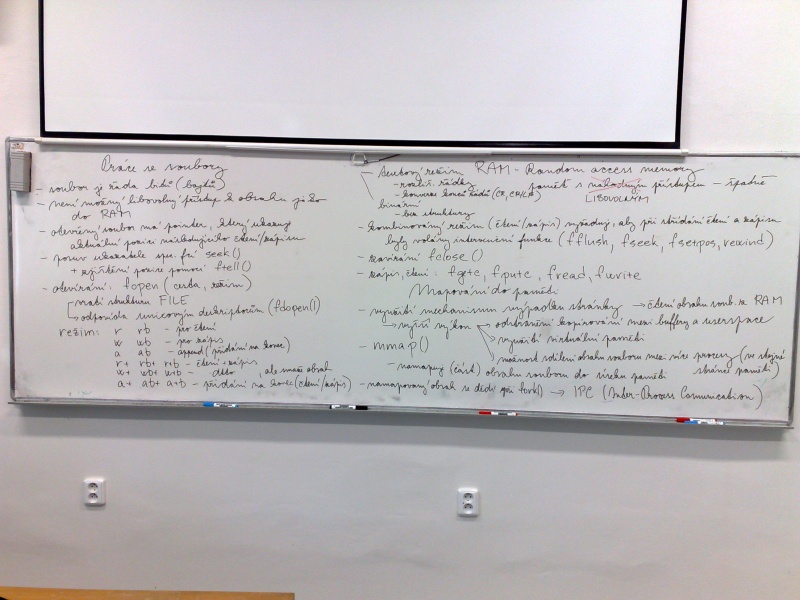 Práce se soubory
- soubor je řada bitů (bajtů)
- není možný libovolný přístup k obsahu jako
do RAM
- otevřený soubor má pointer, který ukazuje
aktuální pozici následujícího čtení/zápisu
- posuv ukazatele spec. fcí seek()
+ zjištění pozice pomocí ftell()
- otevírání: fopen (cesta, režim)
vrací strukturu FILE
odpovídá unixovým deskriptorům (fdopen())
režim: r rb - pro čtení
w wb - pro zápis
a ab - append (přidání na konec)
r+ rb+ r+b - čtení + zápis
w+ wb+ w+b - detto, ale smaže obsah
a+ ab+ a+b - přidání na konec (čtení/zápis)
- textový režim
- rozliš. řádky
- konverze konců řádků (CR, CR/LF)
binární
- bez struktury
RAM - Random access memory
paměť s náhodným přístupem - špatně
LIBOVOLNÝM
- kombinovaný režim (čtení/zápis) vyžaduje, aby při střídání čtení a zápisu
byly volány interakční funkce (fflush, fseek, fsetpos, rewind)
- zavírání fclose()
- zápis, čtení: fgetc, fputc, fread, fwrite
Mapování do paměti
- využití mechanismu výpadku stránky → čtení obsahu soub. do RAM
→ vyšší výkon
odstranění kopírování mezi buffery a userspace
využití virtuální paměti
možnost sdílení obsahu souboru mezi více procesy (ve stejné
stránce paměti)
- mmap()
- namapuje (část) obsahu souboru do úseku paměti
- namapovaný obsah se dědí při fork() → IPC (Inter-Process Comunication)